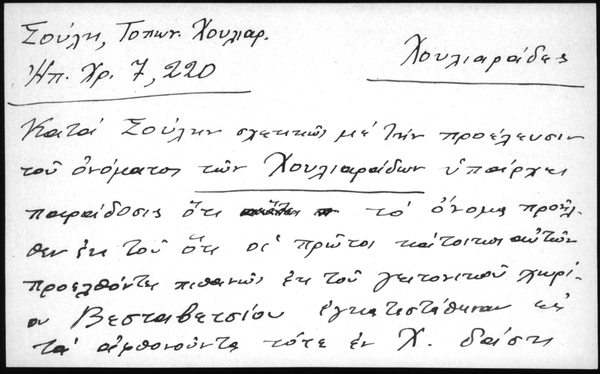 Σούλη, Τοπων. Χουλιαρ.
Ἠπ. Χρ. 7, 220
Χουλιαράδες
Κατά Σούλην σχετικῶς μέ τήν προέλευσιν
τοῦ ὀνόματος τῶν Χουλιαράδων ὑπάρχει
παράδοσις ὅτι τό ὄνομα προῆλ-
θεν ἐκ τοῦ ὅτι οἱ πρῶτοι κάτοικοι αὐτῶν
προελθόντες πιθανῶς ἐκ τοῦ γειτονικοῦ χωρί-
ου Βεσταβετσίου ἐγκατεστάθησαν εἰς
τά ἀφθονοῦντα τότε ἐν Χ. δάση